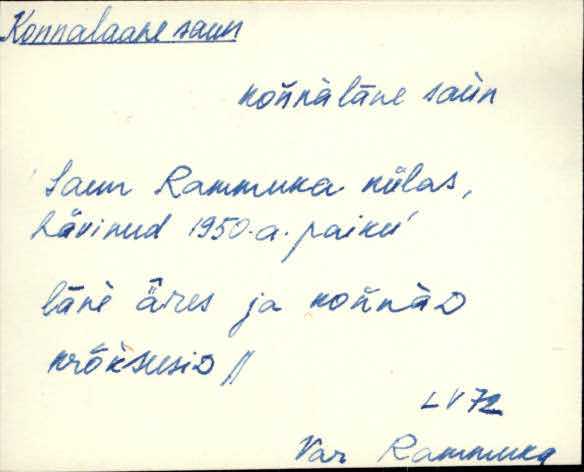 Konnalaane saun
koǹnàlāne saùn
Saun Rammuka külas,
hävinud 1950.-a. paiku
lānè ǟres ja koǹnàD
krȭksusiD //
LV72
Var Rammuka